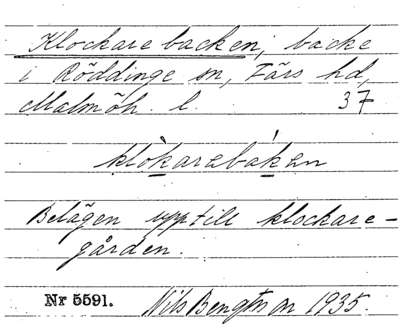 Klockarebacken, backe
i Röddinge sn, Färs hd,
Malmöh. l. 37
klòkarebàken
Belägen upptill klockare-
gården.
Nr 5591. Nils Bengtsson 1935.